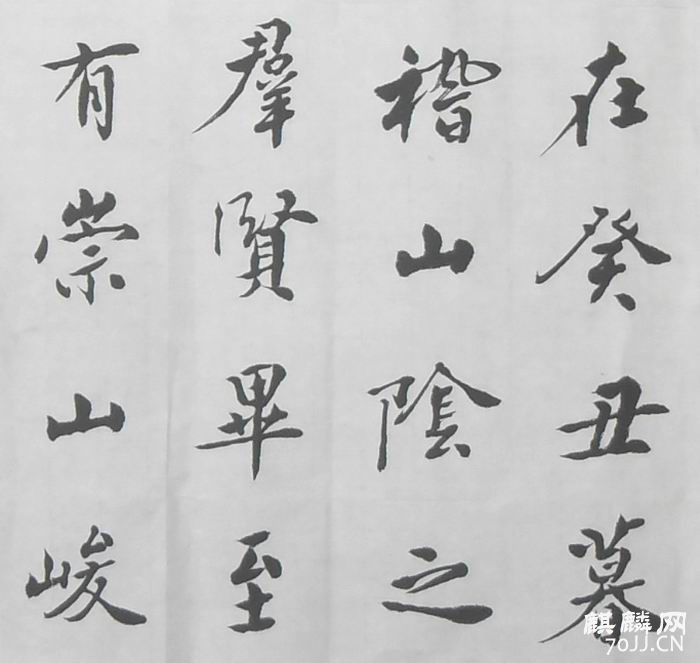 在癸丑暮
稽山陰之
羣賢畢至
有崇山峻
麒麟网
70JJ.CN